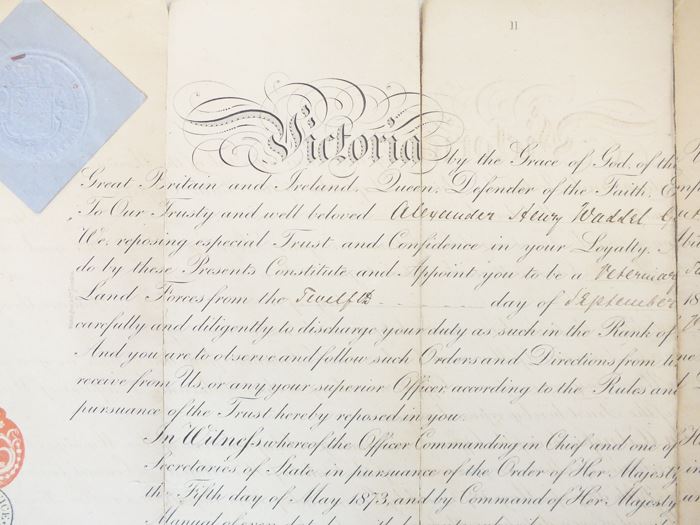 II
Victoria by the Grace of God, of th
Great Britain and Ireland, Queen, Defender of the Faith, E
To Our Trusty and well beloved Alexander Henry Waddel
We, reposing especial Trust and Confidence in your Loyalty,
do by these Presents Constitute and Appoint you to be a Veterinary
Land Forces from the Twelfth day of September 18
carefully and diligently to discharge your duty as such in the Rank of
And you are to observe and follow such Orders and Directions from
receive from Us, or any your superior Officer, according to the Rules and
pursuance of the Trust hereby reposed in you.
In Witness whereof the Officer Commanding in Chief and one of
Secretaries of State in pursuance of the Order of Her Majesty in
the Fifth day of May 1873, and by Command of Her Majesty